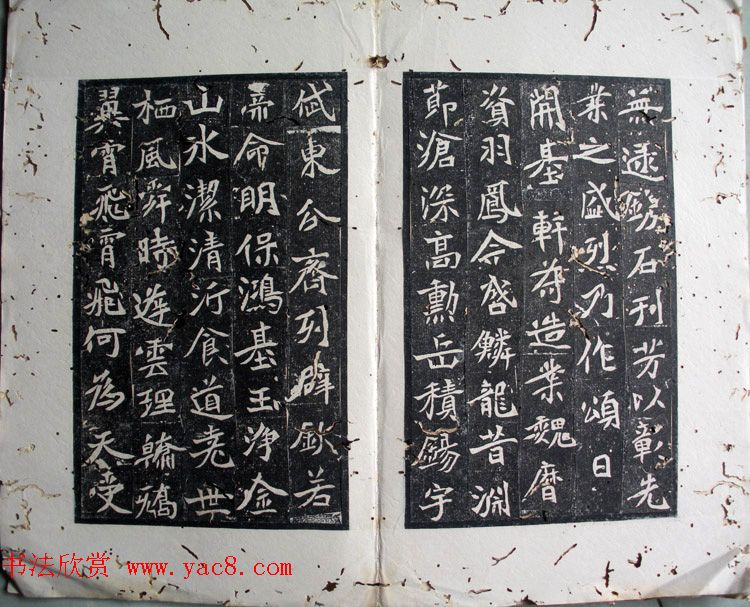 無遂鐫石刊芳以彰先
業之盛烈乃作頌曰
開基軒符造業魏曆
資羽鳳今啓鱗龍昔淵
節滄深高勳岳積錫宇
東公齊列辟欽若
帝命明保鴻基玉淨金
山冰潔清沂食道堯世
栖風舜時遊雲理翰
翼霄飛霄飛何為天受
书法欣赏 www.yac8.com